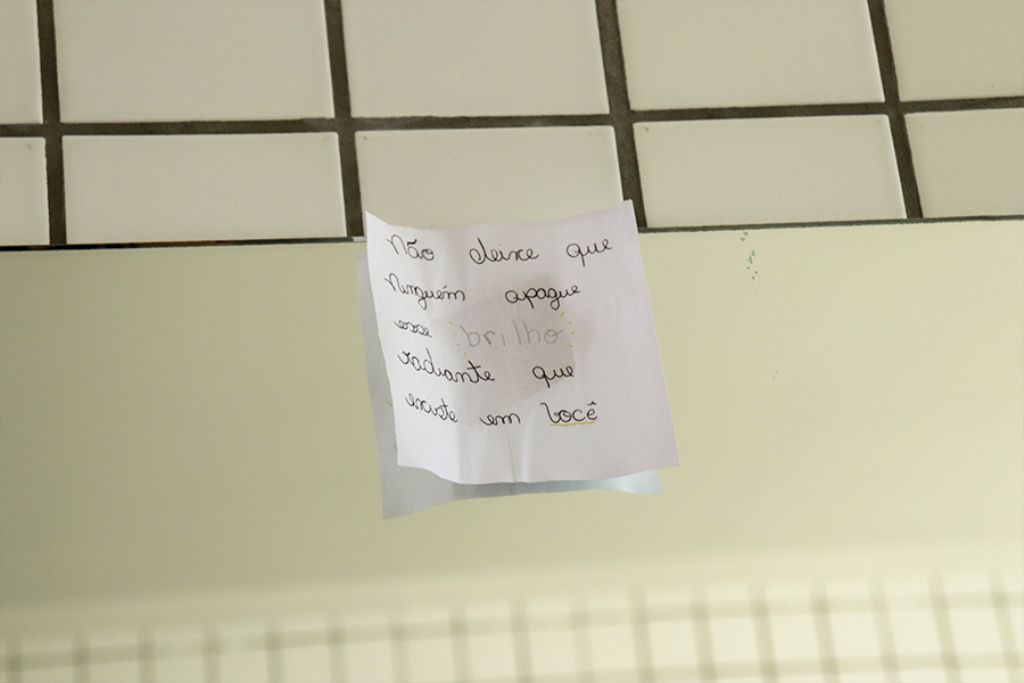 Não deixe que
Ninguém apague
esse brilho
radiante que
existe em você